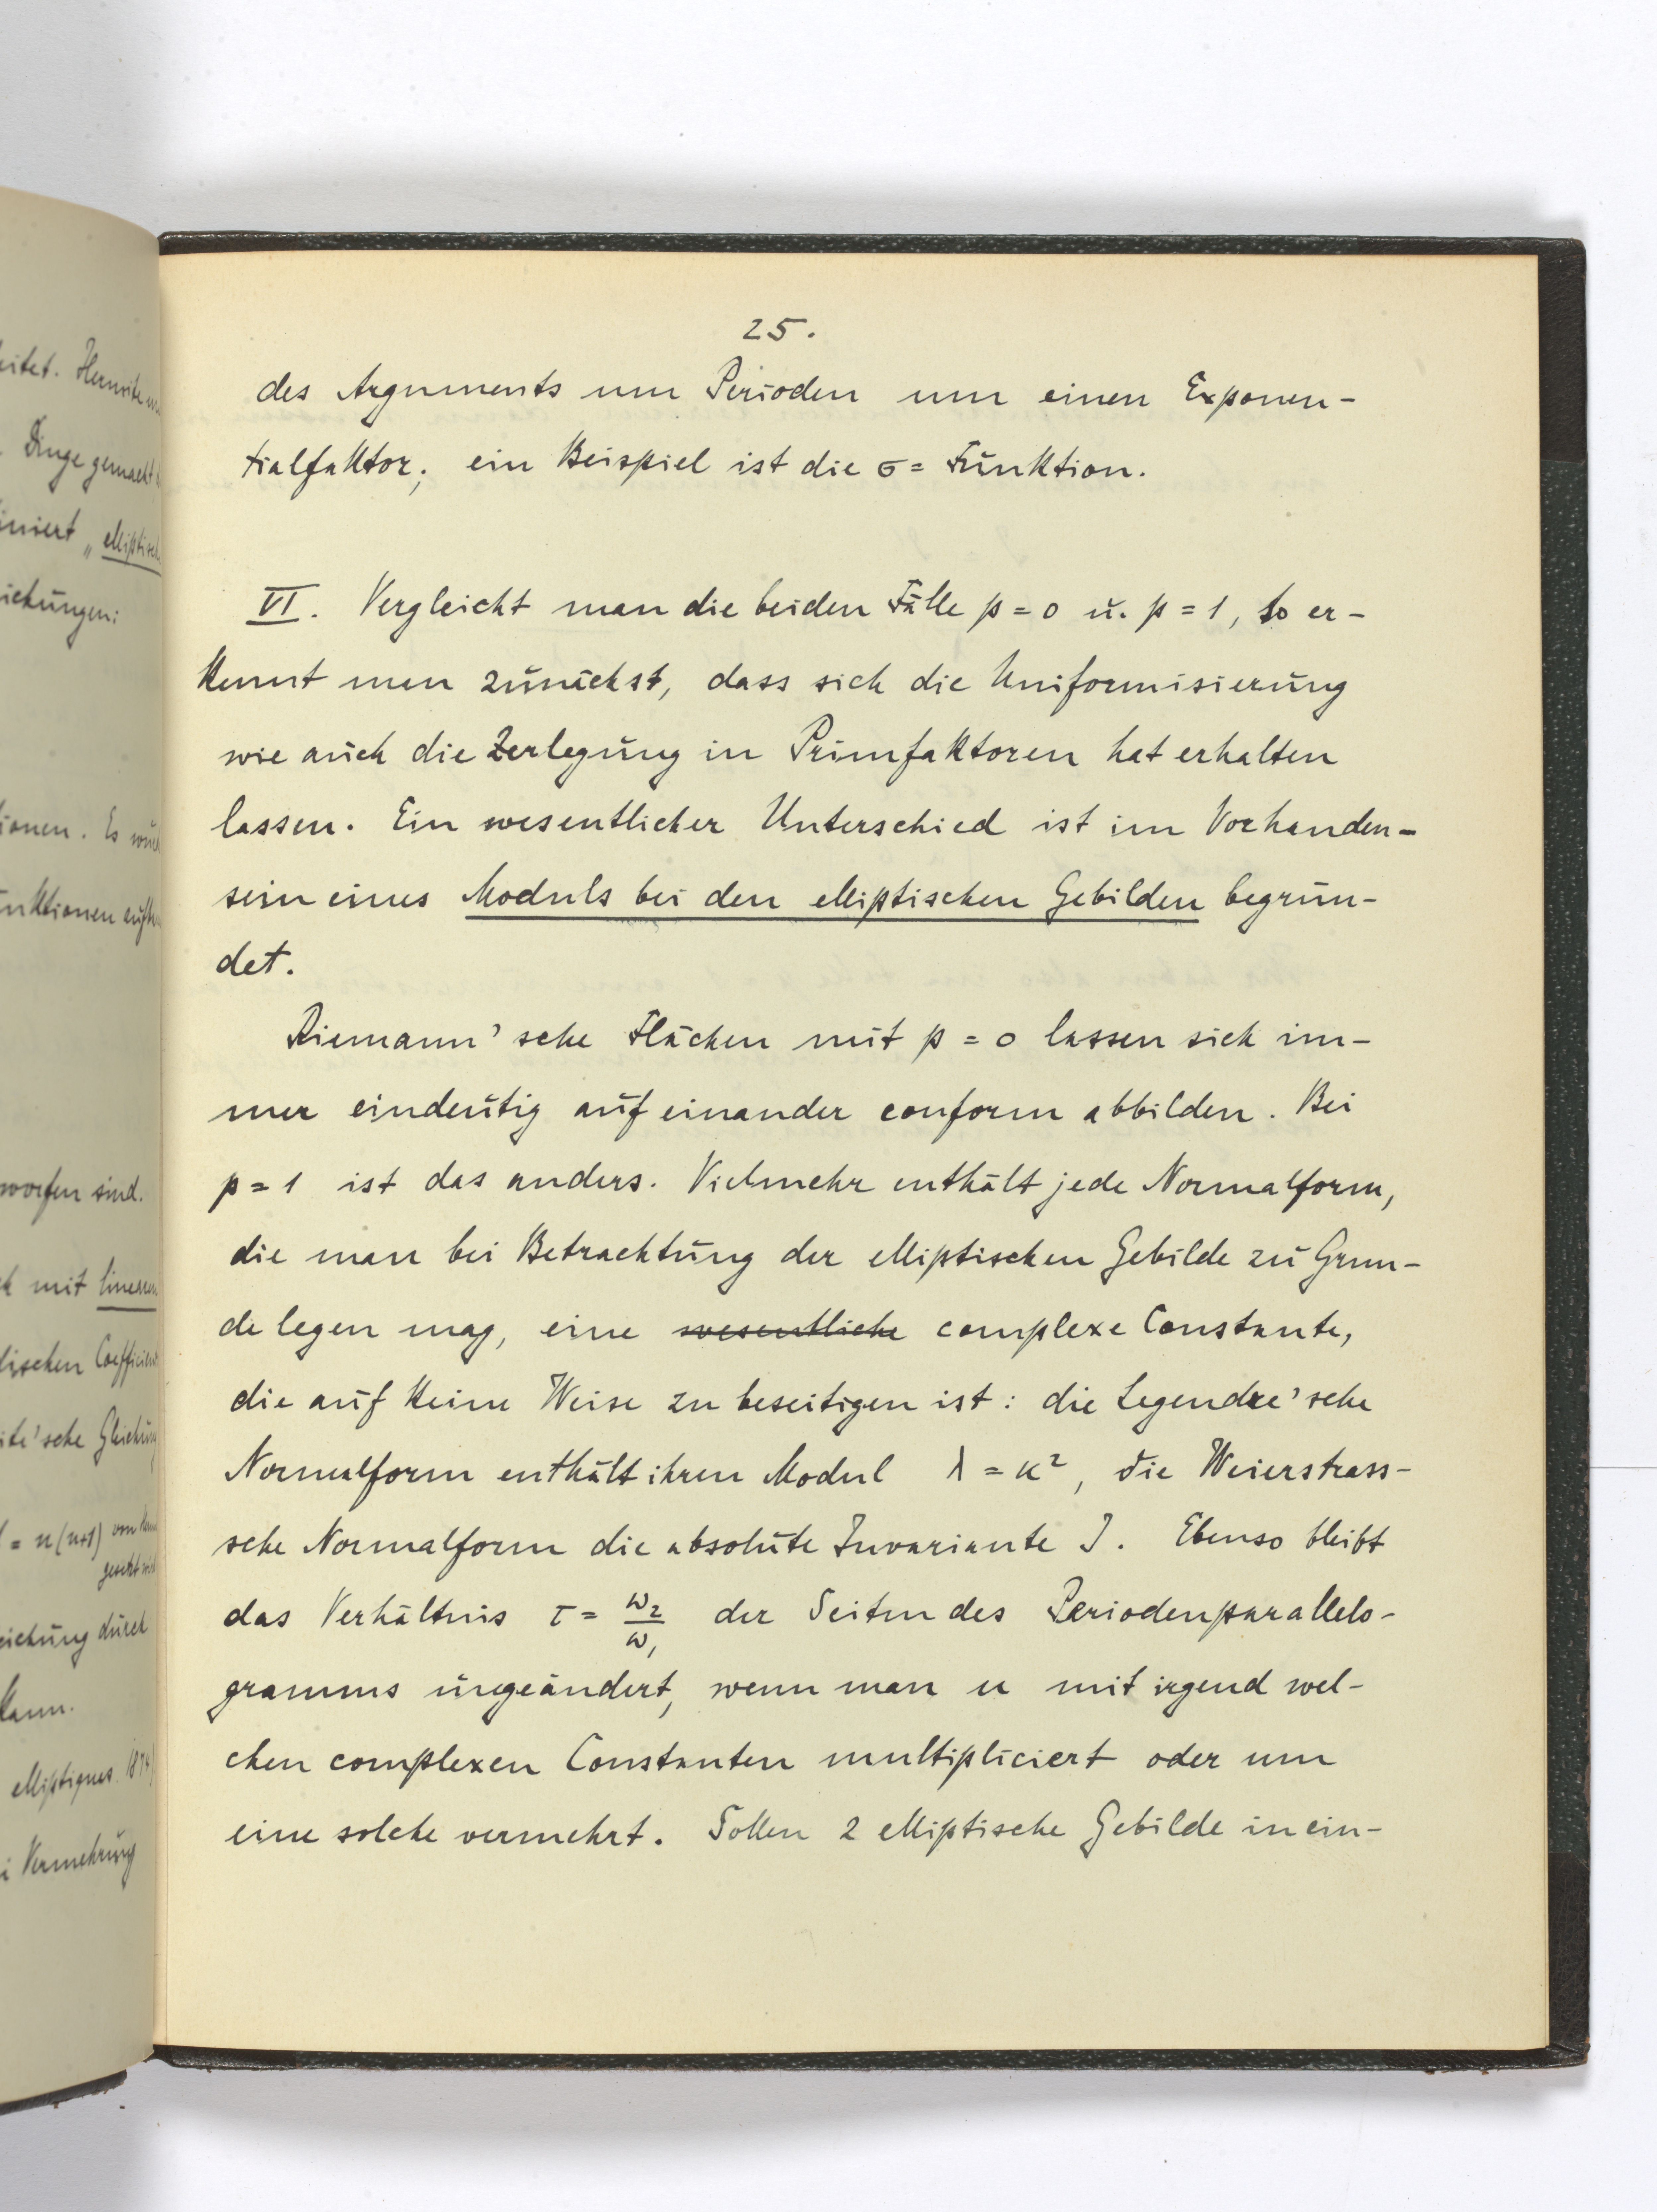 eitet. Hermite
Dinge gemacht
iniert „ elliptisch
iehungen:
ionen. Es
nktionen
worfen sind.
mit linearen
dischen Coefficient
ite'sche Gleichung
= n(n+1) von
gesetzt
eichung durch
kann.
elliptiques. 1874
i Vermehrung
25.
des Arguments um Perioden um einen Exponen-
tialfaktor; ein Beispiel ist die σ= Funktion.
VI. Vergleicht man die beiden Fälle p = 0 u. p = 1, so er-
kennt man zunächst, dass sich die Uniformisierung
wie auch die Zerlegung in Primfaktoren hat erhalten
lassen. Ein wesentlicher Unterschied ist im Vorhanden-
sein eines Moduls bei den elliptischen Gebilden begrün-
det.
Riemann'sche Flächen mit p = 0 lassen sich im-
mer eindeutig auf einander conform abbilden. Bei
p = 1 ist das anders. Vielmehr enthält jede Normalform,
die man bei Betrachtung der elliptischen Gebilde zu Grun-
de legen mag, eine wesentliche complexe Constante,
die auf keine Weise zu beseitigen ist: die Legendre'sche
Normalform enthält ihren Modul λ = κ², die Weierstrass-
sche Normalform die absolute Invariante J. Ebenso bleibt
das Verhältnis τ = ω₂/ω₁ der Seiten des Periodenparallelo-
gramms ungeändert, wenn man u mit irgend wel-
chen complexen Constanten multipliciert oder um
eine solche vermehrt. Sollen 2 elliptische Gebilde in ein-